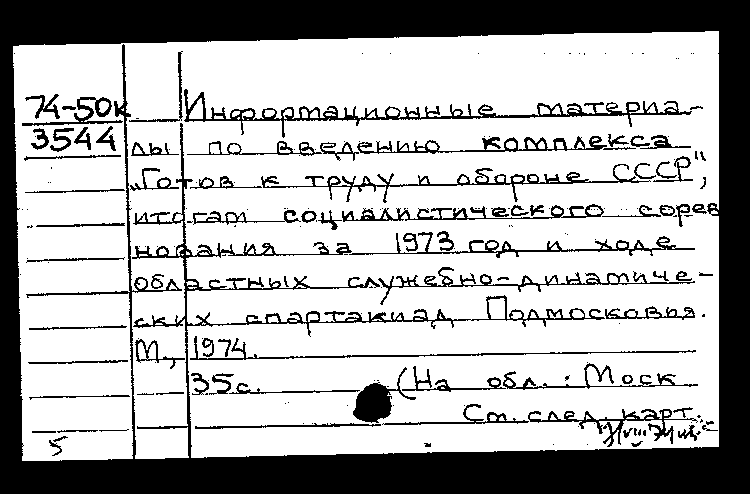 74-50к
3544
Информационные материа-
лы по введению комплекса
„Готов к труду и обороне СССР",
итогам социалистического сорев
нования за 1973 год и ходе
областных служебно-динамиче-
ских спартакиад Подмосковья.
М., 1974.
35с. (На обл.: Моск
См. след. карт.
5